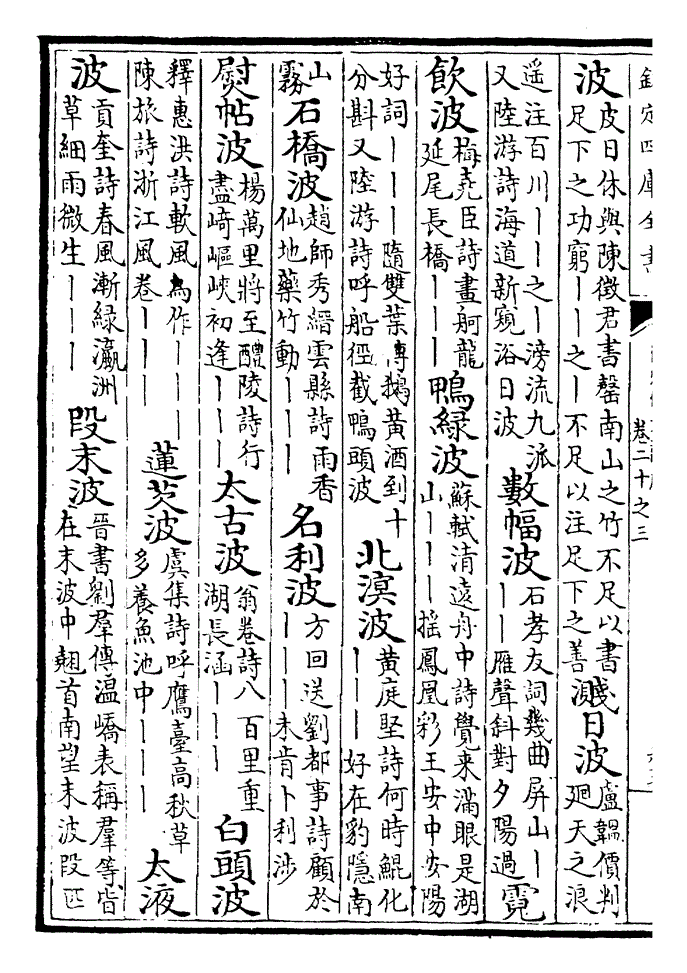 欽定四庫全書
卷二十之三
波
皮日休與陳徵君書罄南山之竹不足以書
足下之功窮丨丨之丨不足以注足下之善
濺日波
盧鞰價判
廻天之浪
遥注百川丨丨之丨滂流九派
又陸游詩海道新窺浴日波
數幅波
石孝友詞幾曲屏山丨
丨丨雁聲斜對夕陽過
霓
飲波
梅堯臣詩畫舸龍
延尾長橋丨丨丨
鴨綠波
蘇軾清遠舟中詩覺来滿眼是湖
山丨丨丨摇鳳凰彩王安中安陽
好詞丨丨丨隨雙葉傳鵝黄酒到十
分斟又陸游詩呼船徑截鴨頭波
北溟波
黄庭堅詩何時鯤化
丨丨丨好在豹隱南
山
霧
石橋波
趙師秀縉雲縣詩雨香
仙地藥竹動丨丨丨
名利波
方回送劉都事詩顧於
丨丨丨未肯卜利涉
熨帖波
楊萬里將至醴陵詩行
盡崎嶇峽初逢丨丨丨
太古波
翁卷詩八百里重
湖長涵丨丨丨
白頭波
釋惠洪詩軟風為作丨丨丨
陳旅詩浙江風卷丨丨丨
蓮芡波
虞集詩呼鷹臺高秋草
多養魚池中丨丨丨
太液
波
貢奎詩春風漸綠瀛洲
草細雨微生丨丨丨
段末波
晉書劉羣傳温嶠表稱羣等皆
在末波中翹首南望末波段匹